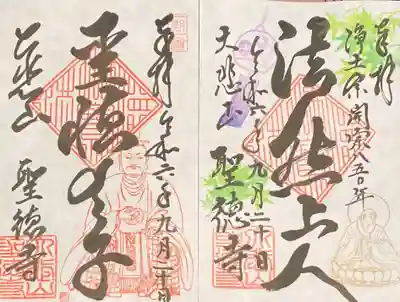 奉拝
浄土宗開宗八五〇年
法然上人
令和六年九月二十日
大悲山
聖徳寺
奉拝
令和六年九月二十日
聖徳太子
大悲山
聖徳寺